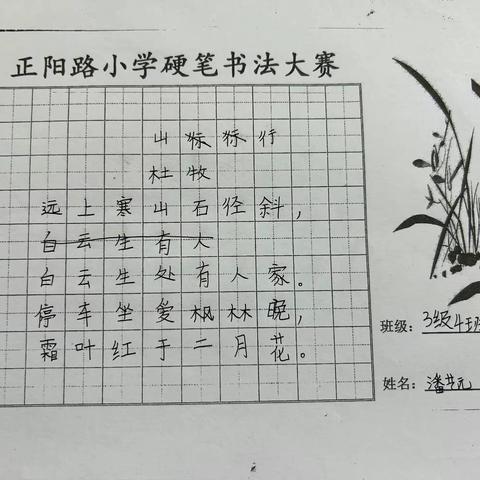 正阳路小学硬笔书法大赛
山 行
杜牧
远上寒山石径斜，
白云生有人
白云生处有人家。
停车坐爱枫林晚，
霜叶红于二月花。
班级：3级4班
姓名：潘